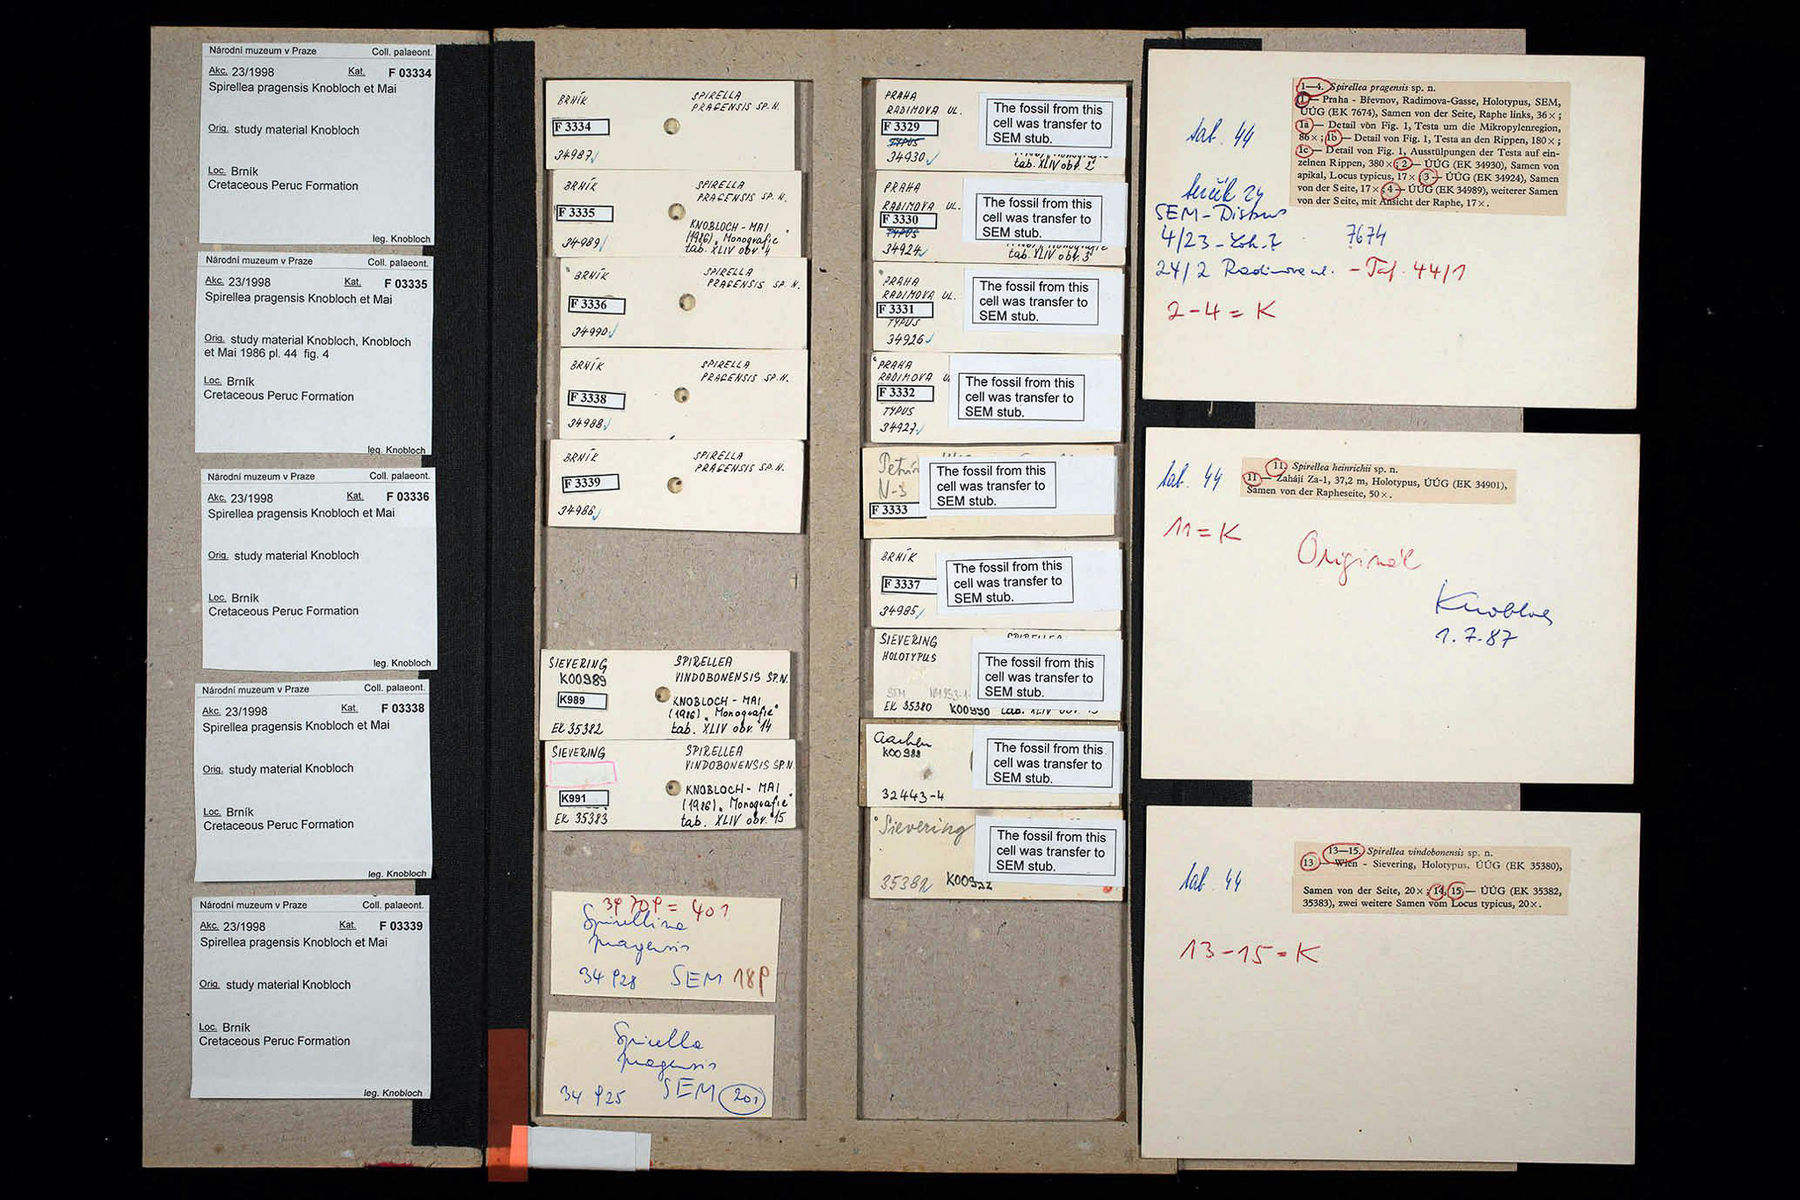 Národní muzeum v Praze Coll. palaeont.
Akc. 23/1998 Kat. F 03334
Spirellea pragensis Knobloch et Mai
Orig. study material Knobloch
Loc. Brník
Cretaceous Peruc Formation
leg. Knobloch
Národní muzeum v Praze Coll. palaeont.
Akc. 23/1998 Kat. F 03335
Spirellea pragensis Knobloch et Mai
Orig. study material Knobloch, Knobloch
et Mai 1986 pl. 44 fig. 4
Loc. Brník
Cretaceous Peruc Formation
leg. Knobloch
Národní muzeum v Praze Coll. palaeont.
Akc. 23/1998 Kat. F 03336
Spirellea pragensis Knobloch et Mai
Orig. study material Knobloch
Loc. Brník
Cretaceous Peruc Formation
leg. Knobloch
Národní muzeum v Praze Coll. palaeont.
Akc. 23/1998 Kat. F 03338
Spirellea pragensis Knobloch et Mai
Orig. study material Knobloch
Loc. Brník
Cretaceous Peruc Formation
leg. Knobloch
Národní muzeum v Praze Coll. palaeont.
Akc. 23/1998 Kat. F 03339
Spirellea pragensis Knobloch et Mai
Orig. study material Knobloch
Loc. Brník
Cretaceous Peruc Formation
leg. Knobloch
BRNÍK SPIRELLA
PRAGENSIS SP. N.
F 3334
34987
BRNÍK SPIRELLA
PRAGENSIS SP. N.
F 3335
KNOBLOCH - MAI
34989 (1986) „Monografie"
tab. XLIV obr. 4
BRNÍK SPIRELLA
PRAGENSIS SP. N.
F 3336
34990
BRNÍK SPIRELLA
PRAGENSIS SP. N.
F 3338
34988
BRNÍK SPIRELLA
PRAGENSIS SP. N.
F 3339
34986
SIEVERING SPIRELLEA
K00989 VINDOBONENSIS SP.N.
K989
KNOBLOCH - MAI
(1986) „Monografie"
EK 35382 tab. XLIV obr. 14
SIEVERING SPIRELLEA
VINDOBONENSIS SP.N.
K991
KNOBLOCH - MAI
(1986) „Monografie"
EK 35383 tab. XLIV obr. 15
= 401
pragensis
34 928 SEM 18P
Spirella
pragensis
34 925 SEM 201
PRAHA
RADIMOVA UL.
F 3329
TYPUS
34930
tab. XLIV obr. 2
The fossil from this
cell was transfer to
SEM stub.
PRAHA
RADIMOVA UL.
F 3330
TYPUS
34924
tab. XLIV obr. 3
The fossil from this
cell was transfer to
SEM stub.
PRAHA
RADIMOVA UL.
F 3331
TYPUS
34926
The fossil from this
cell was transfer to
SEM stub.
PRAHA
RADIMOVA U
F 3332
TYPUS
34927
The fossil from this
cell was transfer to
SEM stub.
N-3
F 3333
The fossil from this
cell was transfer to
SEM stub.
BRNÍK
F 3337
34985
The fossil from this
cell was transfer to
SEM stub.
SIEVERING SPIRELLEA
HOLOTYPUS
SEM
EK 35380 K00990 tab. XLIV obr. 13
The fossil from this
cell was transfer to
SEM stub.
Aachen
K00988
32443-4
The fossil from this
cell was transfer to
SEM stub.
Sievering
35382 K00992
The fossil from this
cell was transfer to
SEM stub.
1—4. Spirellea pragensis sp. n.
1 — Praha - Břevnov, Radimova-Gasse, Holotypus, SEM,
ÚÚG (EK 7674), Samen von der Seite, Raphe links, 36×;
1a — Detail von Fig. 1, Testa um die Mikropylenregion,
86×; 1b — Detail von Fig. 1, Testa an den Rippen, 180×;
1c — Detail von Fig. 1, Ausstülpungen der Testa auf ein-
zelnen Rippen, 380×; 2 — ÚÚG (EK 34930), Samen von
apikal, Locus typicus, 17×; 3 — ÚÚG (EK 34924), Samen
von der Seite, 17×; 4 — ÚÚG (EK 34989), weiterer Samen
von der Seite, mit Ansicht der Raphe, 17×.
tab. 44
24
SEM-
4/23 - 7674
24/2 Radimova ul. - Taf. 44/1
2-4 = K
tab. 44
11 Spirellea heinrichii sp. n.
11 — Zahájí Za-1, 37,2 m, Holotypus, ÚÚG (EK 34901),
Samen von der Rapheseite, 50×.
11 = K
Originál
Knobloch
1.7.87
tab. 44
13—15. Spirellea vindobonensis sp. n.
13 — Wien - Sievering, Holotypus, ÚÚG (EK 35380),
Samen von der Seite, 20×; 14, 15 — ÚÚG (EK 35382,
35383), zwei weitere Samen vom Locus typicus, 20×.
13-15 = K